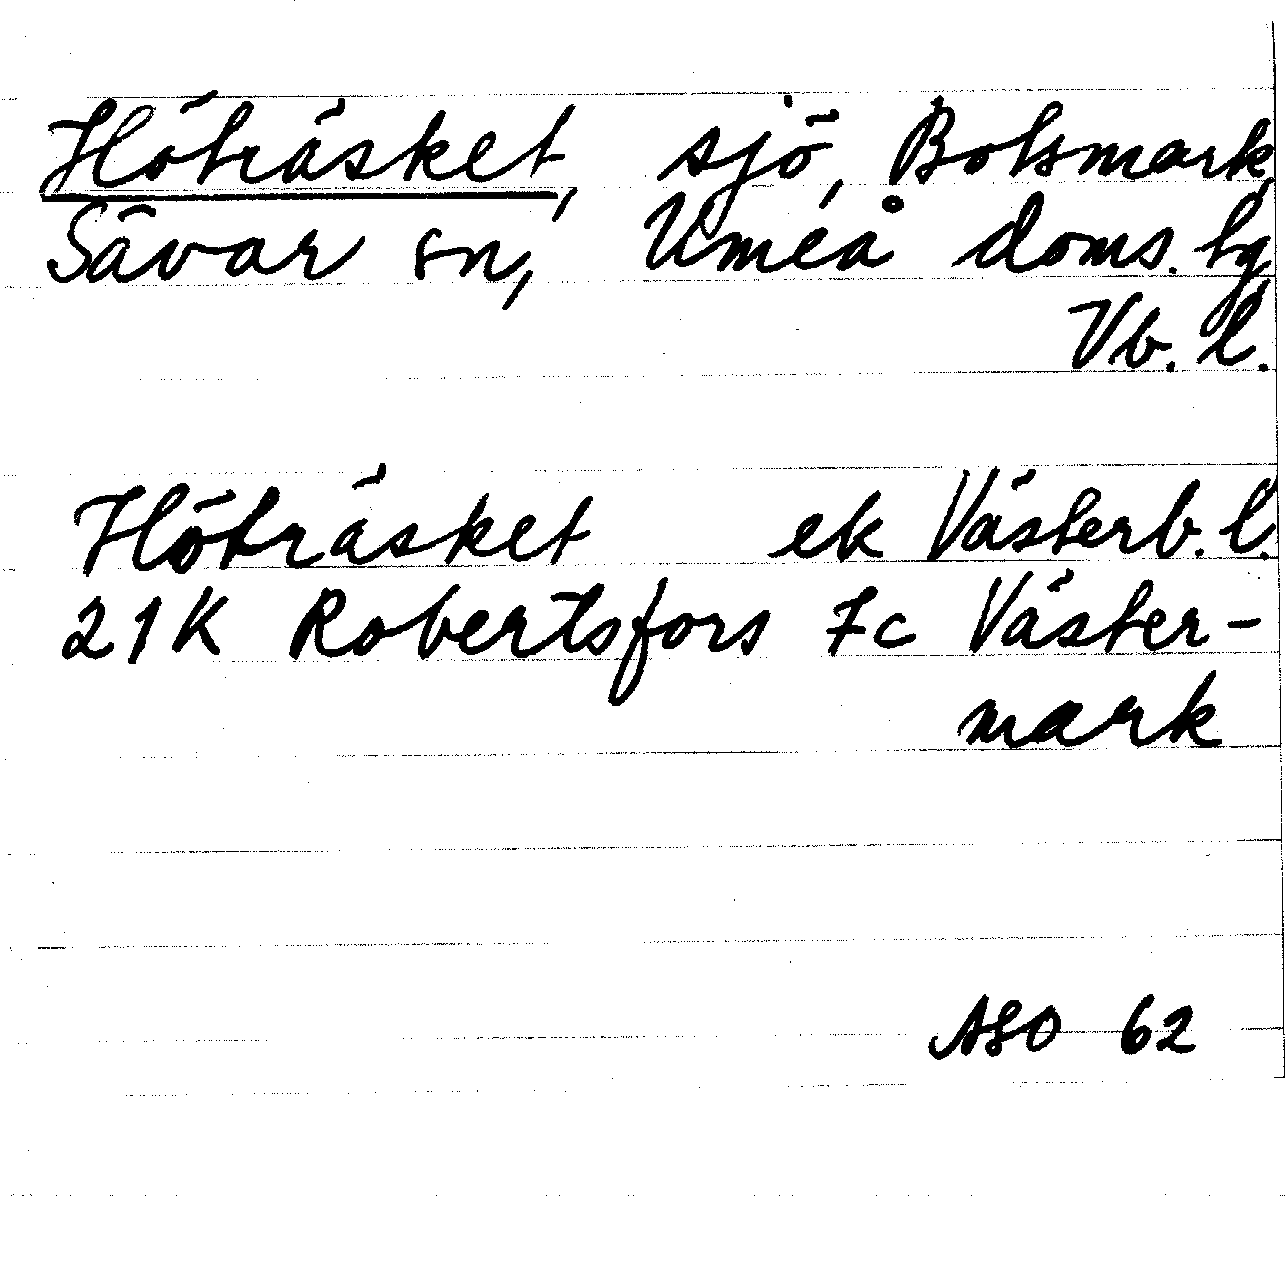 Höträsket, sjö, Botsmark,
Sävar sn, Umeå doms. hg
Vb. l.
Höträsket ek Västerb. l.
21K Robertsfors 7c Väster-
mark
ASO 62